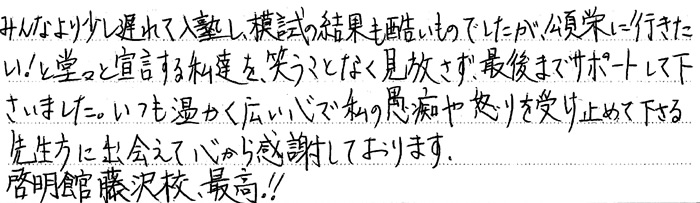 みんなより少し遅れて入塾し、模試の結果も酷いものでしたが、「頌栄に行きた
い!」と堂々と宣言する私達を、笑うことなく見放さず、最後までサポートして下
さいました。いつも温かく広い心で私の愚痴や怒りを受け止めて下さる
先生方に出会えて心から感謝しております。
啓明館藤沢校、最高!!